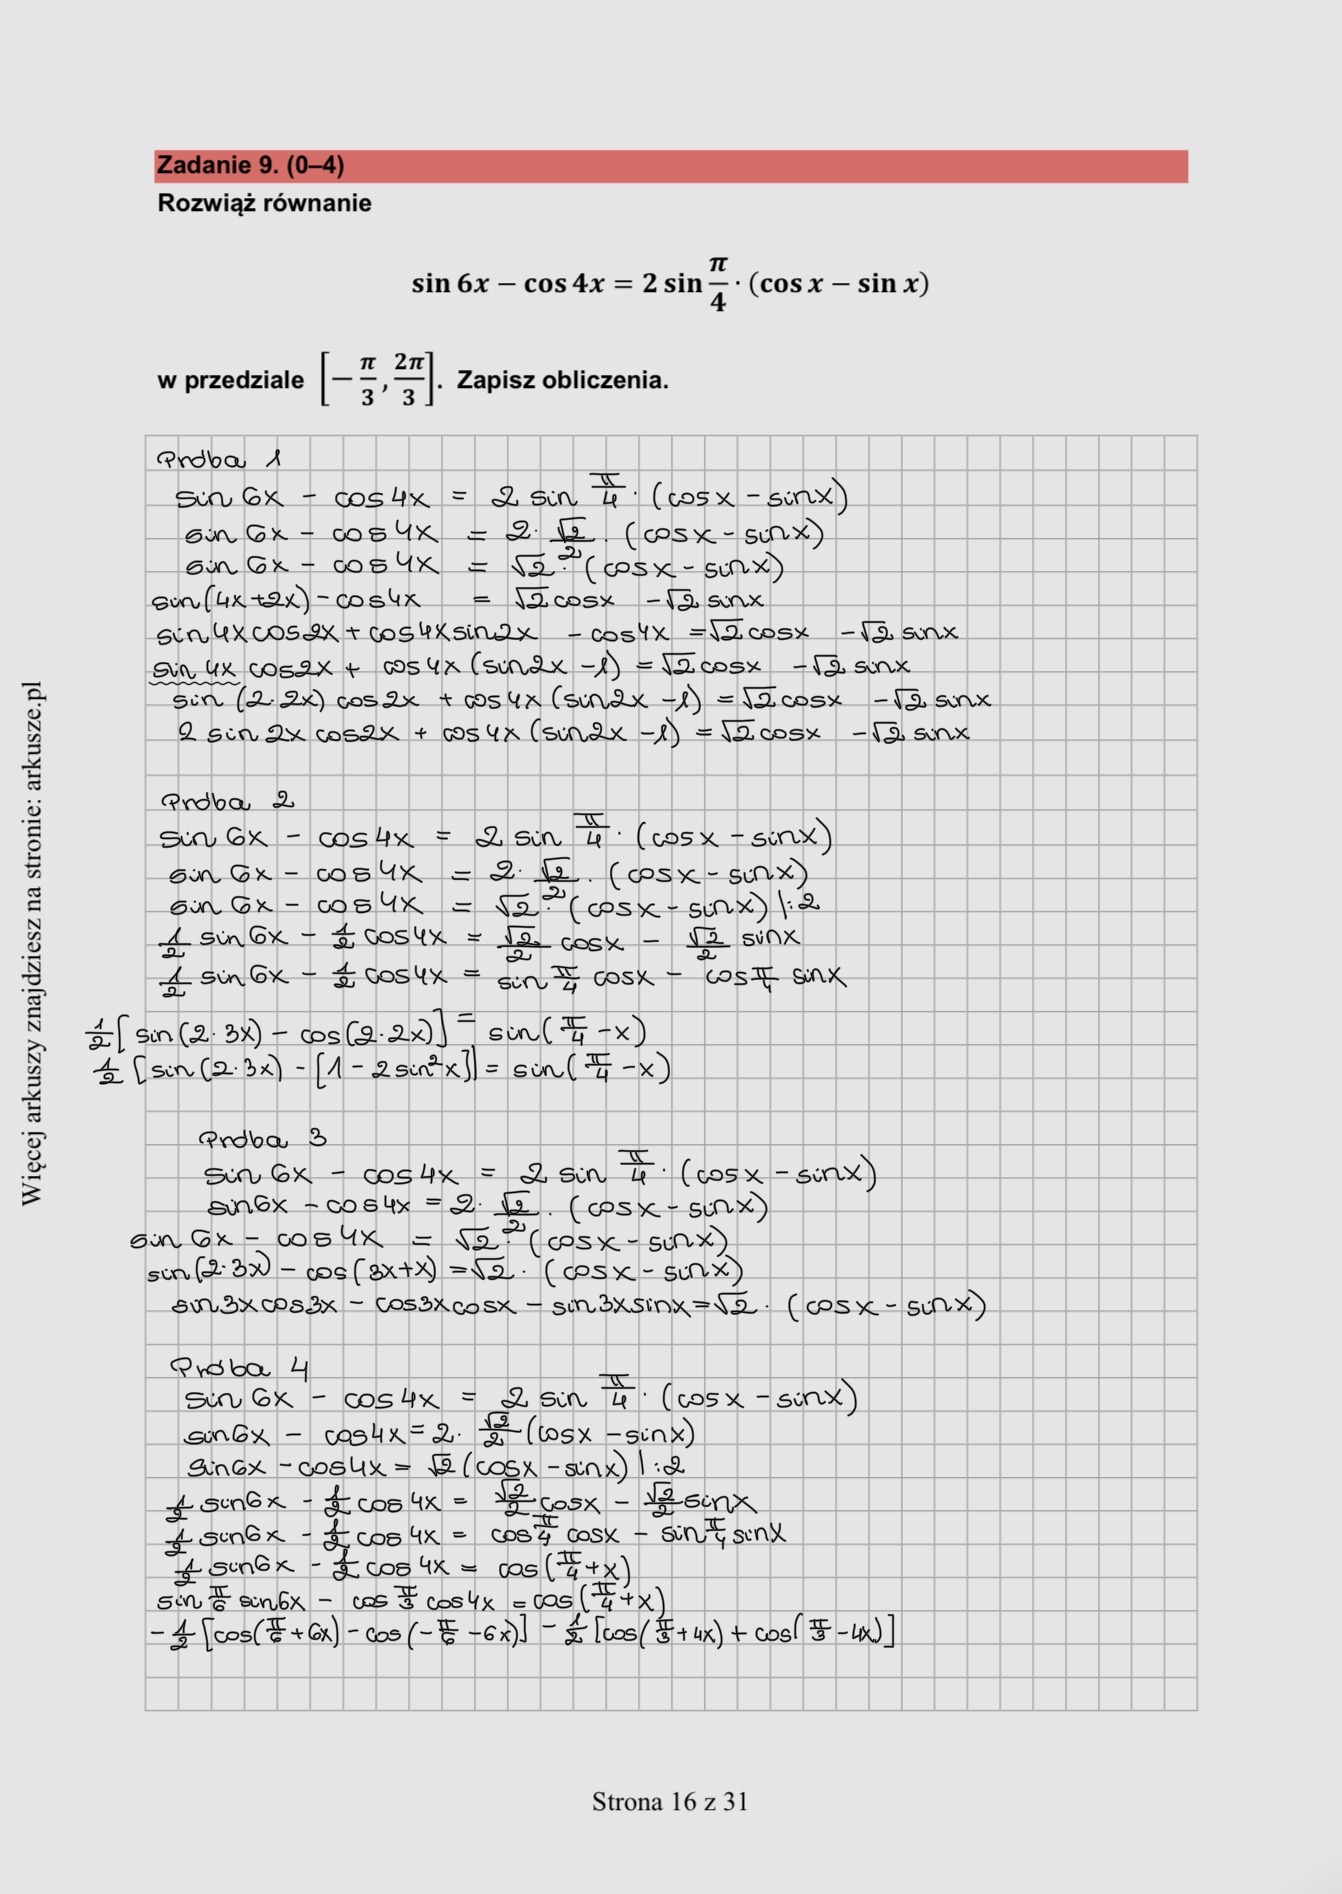 Zadanie 9. (0–4)
Rozwiąż równanie
sin 6x − cos 4x = 2 sin π/4 · (cos x − sin x)
w przedziale [−π/3, 2π/3]. Zapisz obliczenia.
Próba 1
sin 6x − cos 4x = 2 sin π/4 · (cosx − sinx)
sin 6x − cos 4x = 2 · √2/2 · (cosx − sinx)
sin 6x − cos 4x = √2 · (cosx − sinx)
sin(4x+2x) − cos4x = √2 cosx − √2 sinx
sin4xcos2x + cos4xsin2x − cos4x = √2 cosx − √2 sinx
sin 4x cos2x + cos4x (sin2x −1) = √2 cosx − √2 sinx
sin (2·2x) cos2x + cos4x (sin2x −1) = √2 cosx − √2 sinx
2 sin 2x cos2x + cos4x (sin2x −1) = √2 cosx − √2 sinx
Próba 2
sin 6x − cos 4x = 2 sin π/4 · (cosx − sinx)
sin 6x − cos 4x = 2 · √2/2 · (cosx − sinx)
sin 6x − cos 4x = √2 · (cosx − sinx) |:2
1/2 sin6x − 1/2 cos4x = √2/2 cosx − √2/2 sinx
1/2 sin6x − 1/2 cos4x = sin π/4 cosx − cos π/4 sinx
1/2 [sin(2·3x) − cos(2·2x)] = sin(π/4 −x)
1/2 [sin(2·3x) − [1 − 2sin²x]] = sin(π/4 −x)
Próba 3
sin 6x − cos 4x = 2 sin π/4 · (cosx − sinx)
sin6x − cos4x = 2 · √2/2 · (cosx − sinx)
sin 6x − cos 4x = √2 · (cosx − sinx)
sin(2·3x) − cos(3x+x) = √2 · (cosx − sinx)
sin3xcos3x − cos3xcosx − sin3xsinx = √2 · (cosx − sinx)
Próba 4
sin 6x − cos 4x = 2 sin π/4 · (cosx − sinx)
sin6x − cos4x = 2 · √2/2 (cosx − sinx)
sin6x − cos4x = √2 (cosx − sinx) |:2
1/2 sin6x − 1/2 cos4x = √2/2 cosx − √2/2 sinx
1/2 sin6x − 1/2 cos4x = cos π/4 cosx − sin π/4 sinx
1/2 sin6x − 1/2 cos4x = cos(π/4 + x)
sin π/6 sin6x − cos π/3 cos4x = cos(π/4 + x)
−1/2 [cos(π/6 + 6x) − cos(−π/6 − 6x)] − 1/2 [cos(π/3 + 4x) + cos(π/3 − 4x)]
Więcej arkuszy znajdziesz na stronie: arkusze.pl
Strona 16 z 31